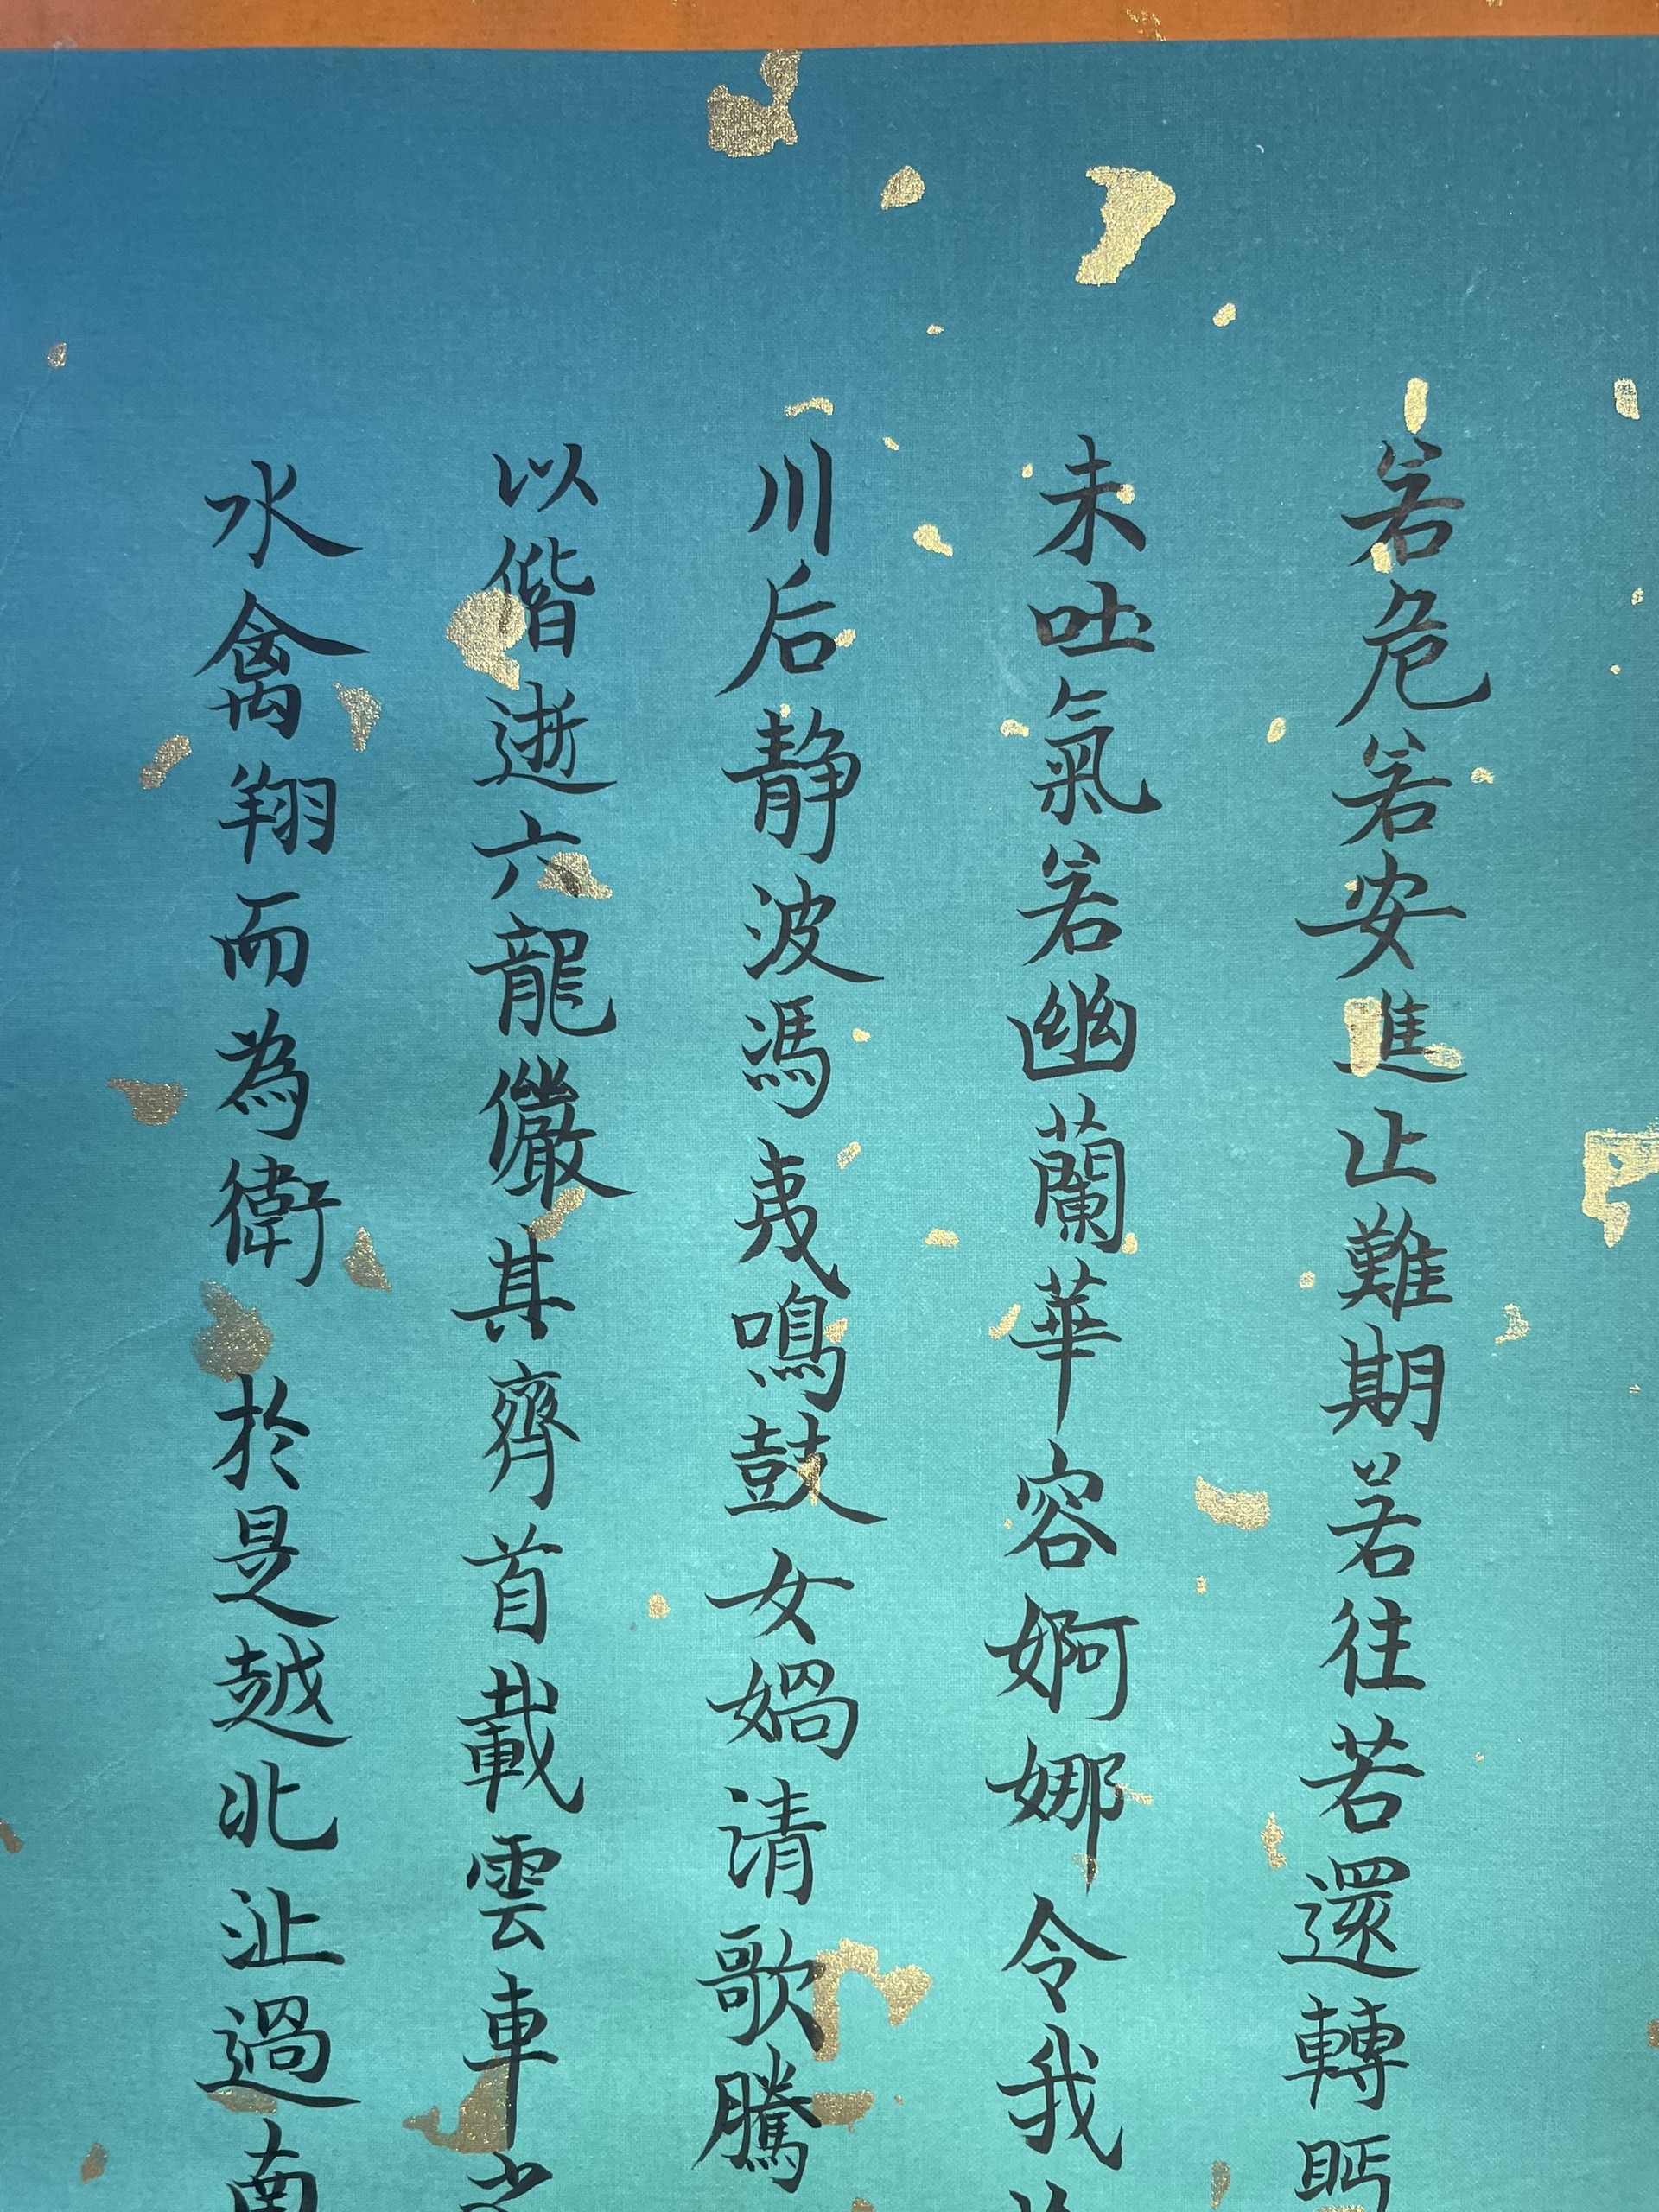 若危若安進止難期若往若還轉眄
未吐氣若幽蘭華容婀娜令我
川后静波馮夷鳴鼓女媧清歌騰
以偕逝六龍儼其齊首載雲車之
水禽翔而為衛於是越北沚過南